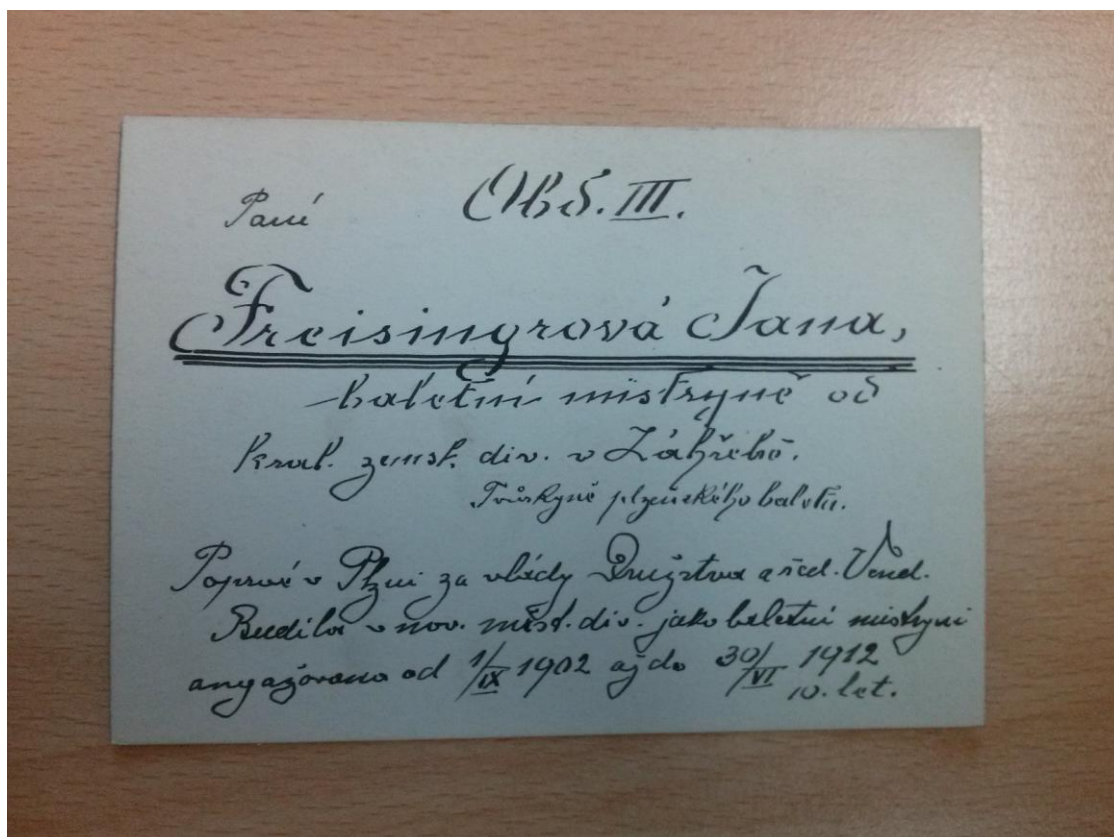 Paní Obd. III.
Freisingrová Jana,
baletní mistryně od
král. zemsk. div. v Záhřebě.
Tvůrkyně plzeňského baletu.
Poprvé v Plzni za vlády Družstva a řed. Vend.
Budila v nov. měst. div. jako baletní mistryní
angažována od 1/IX 1902 až do 30/VI 1912
10. let.